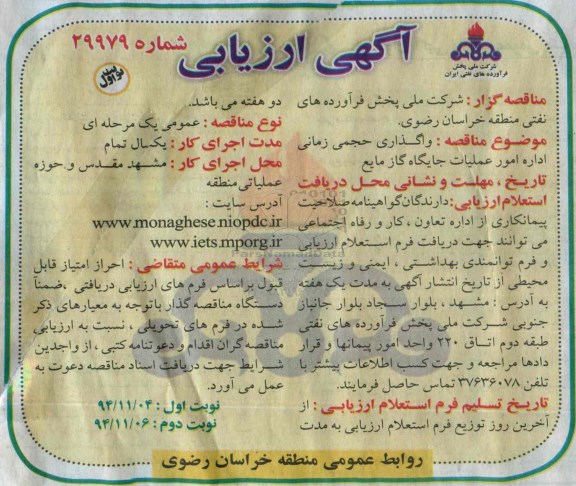 شرکت ملی پخش
فرآورده های نفتی ایران
آگهی ارزیابی
شماره ۲۹۹۷۹
نوبت اول
مناقصه گزار : شرکت ملی پخش فرآورده های
نفتی منطقه خراسان رضوی.
موضوع مناقصه : واگذاری حجمی زمانی
اداره امور عملیات جایگاه گاز مایع
تاریخ ، مهلت و نشانی محل دریافت
استعلام ارزیابی: دارندگان گواهینامه صلاحیت
پیمانکاری از اداره تعاون ، کار و رفاه اجتماعی
می توانند جهت دریافت فرم استعلام ارزیابی
و فرم توانمندی بهداشتی ، ایمنی و زیست
محیطی از تاریخ انتشار آگهی به مدت یک هفته
به آدرس : مشهد ، بلوار سجاد بلوار جانباز
جنوبی شرکت ملی پخش فرآورده های نفتی
طبقه دوم اتاق ۲۲۰ واحد امور پیمانها و قرار
دادها مراجعه و جهت کسب اطلاعات بیشتر با
تلفن ۳۷۶۳۶۰۷۸ تماس حاصل فرمایند.
تاریخ تسلیم فرم استعلام ارزیابی : از
آخرین روز توزیع فرم استعلام ارزیابی به مدت
دو هفته می باشد.
نوع مناقصه : عمومی یک مرحله ای
مدت اجرای کار : یکسال تمام
محل اجرای کار : مشهد مقدس و حوزه
عملیاتی منطقه
آدرس سایت :
www.monaghese.niopdc.ir
www.iets.mporg.ir
شرایط عمومی متقاضی : احراز امتیاز قابل
قبول براساس فرم های ارزیابی دریافتی ،ضمناً
دستگاه مناقصه گذار باتوجه به معیارهای ذکر
شده در فرم های تحویلی ، نسبت به ارزیابی
مناقصه گران اقدام و دعوتنامه کتبی ، از واجدین
شرایط جهت دریافت اسناد مناقصه دعوت به
عمل می آورد.
نوبت اول : ۹۴/۱۱/۰۴
نوبت دوم : ۹۴/۱۱/۰۶
روابط عمومی منطقه خراسان رضوی